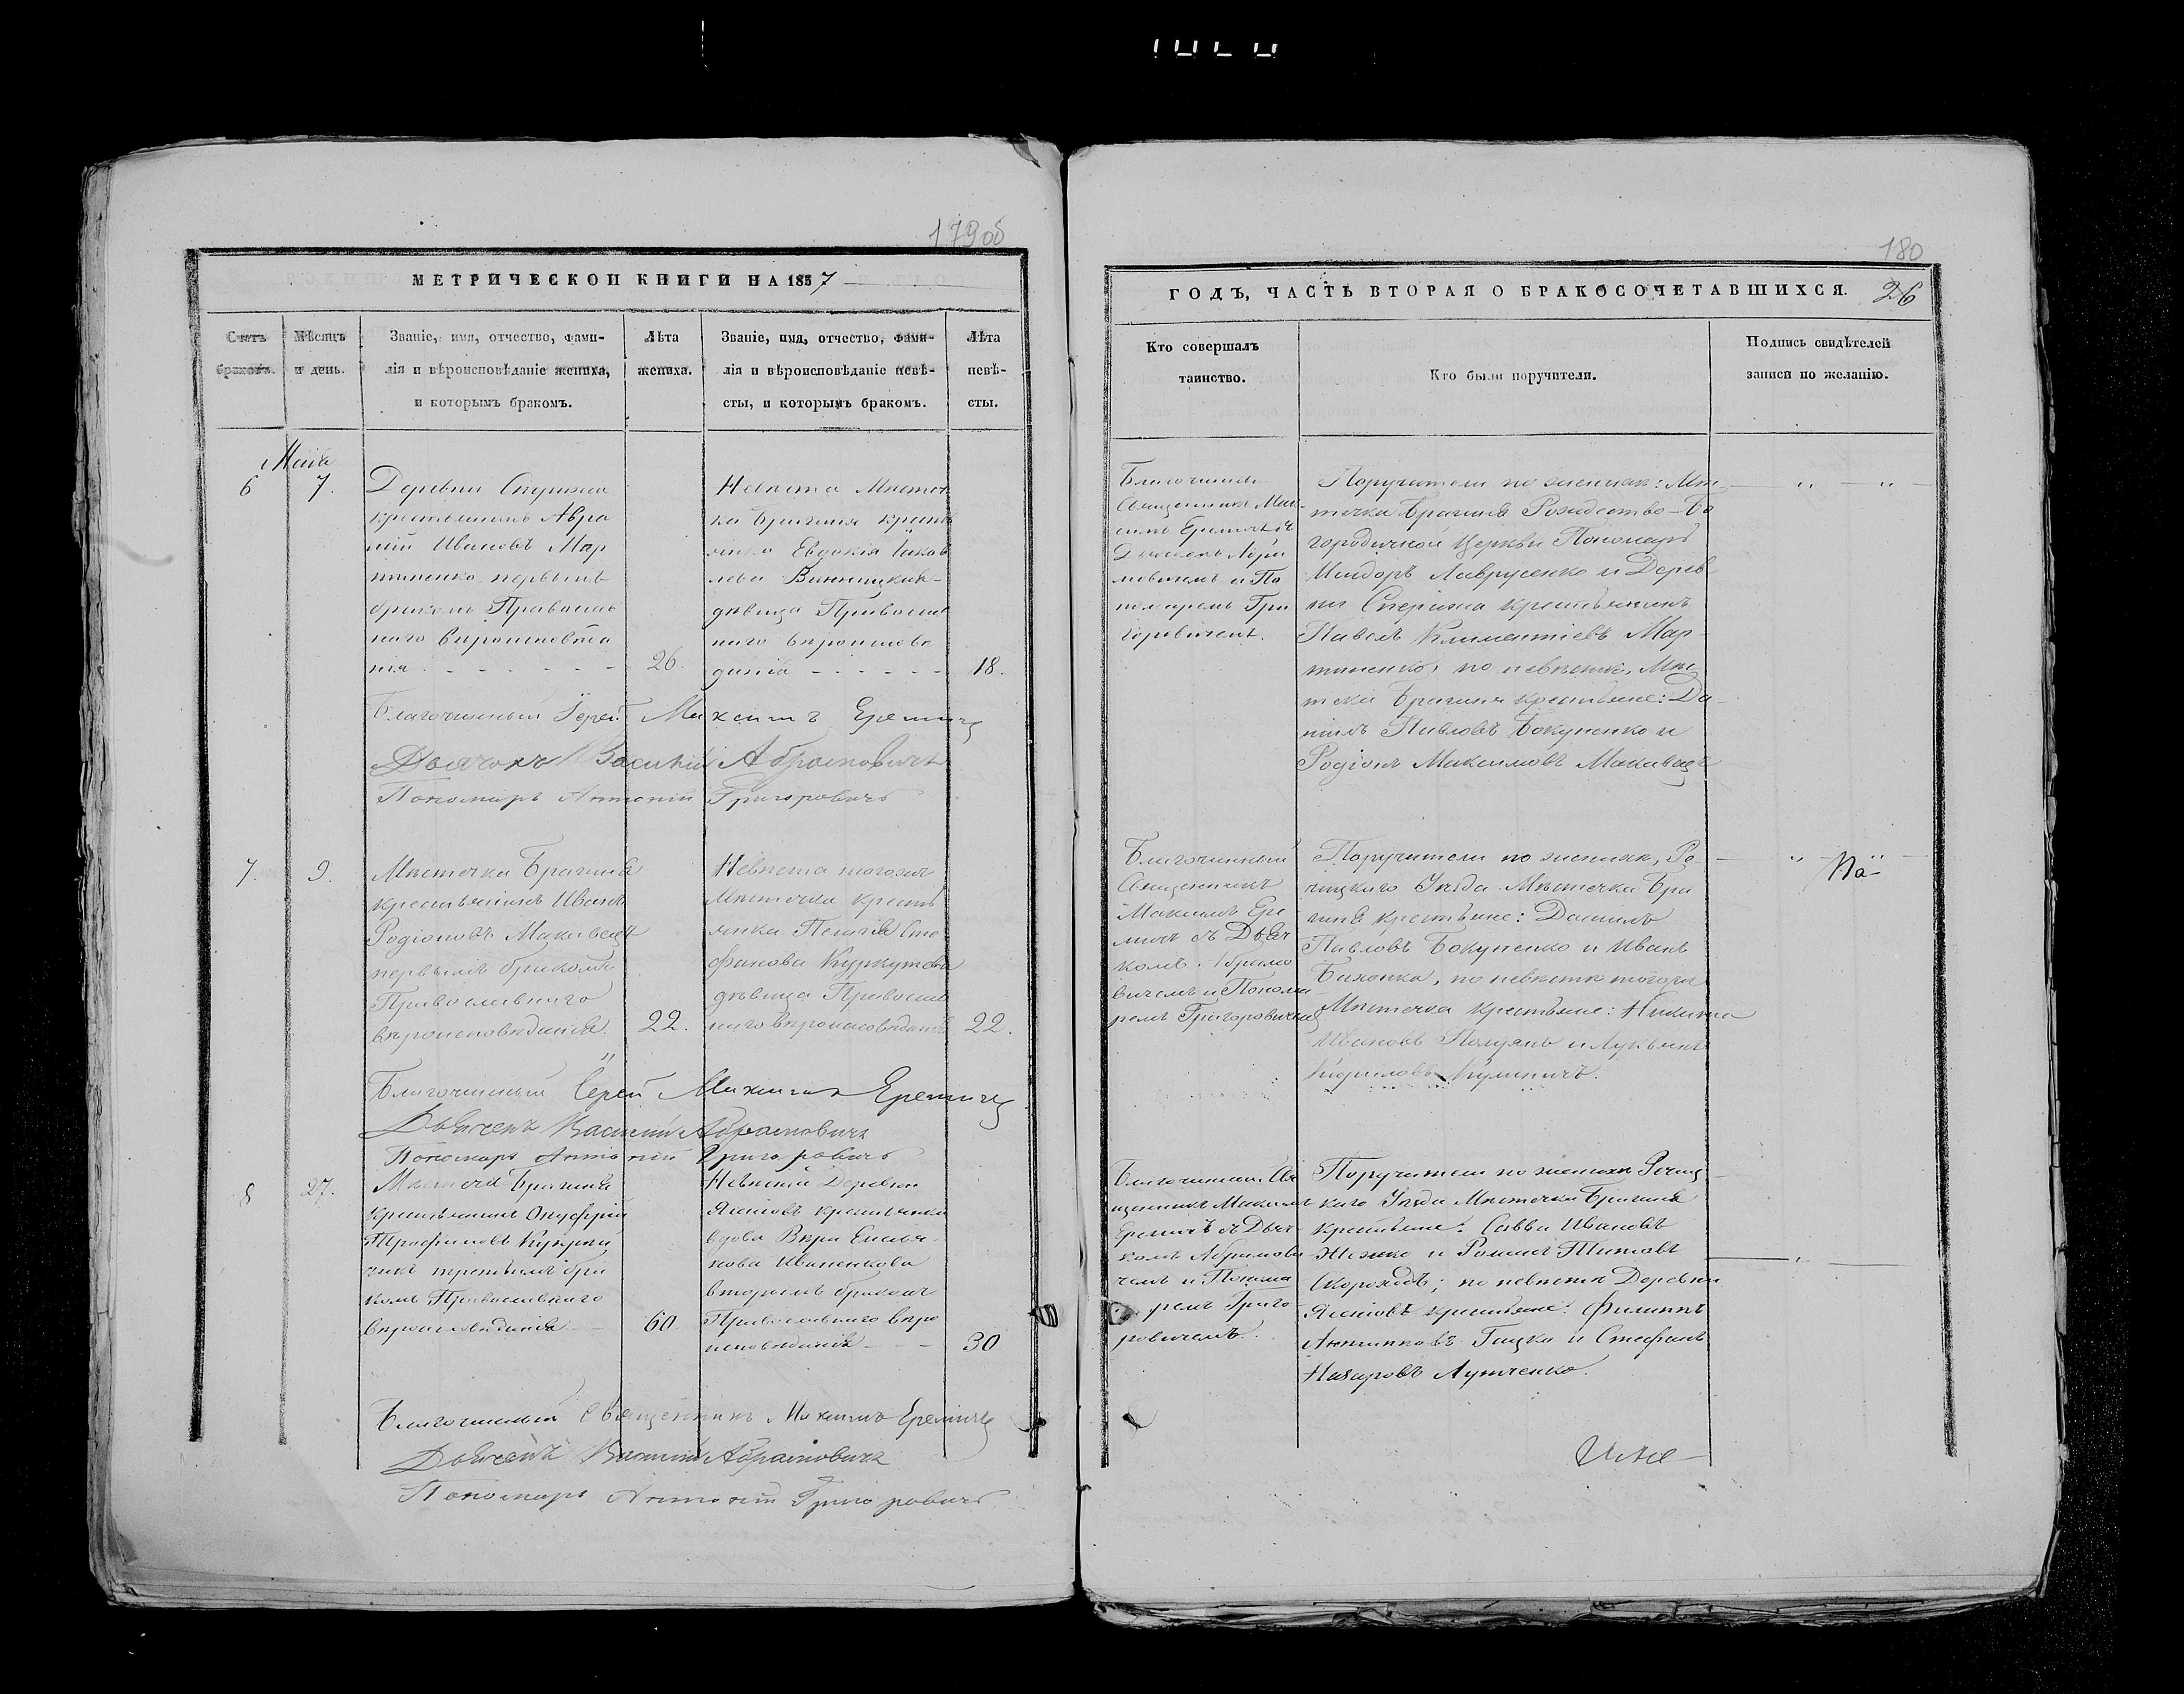 179об
МЕТРИЧЕСКОЙ КНИГИ НА 1857
Счетъ браковъ.
Мѣсяцъ и день.
Званіе, имя, отчество, фами-
лія и вѣроисповѣданіе жениха,
и которымъ бракомъ.
Лѣта
жениха.
Званіе, имя, отчество, фами-
лія и вѣроисповѣданіе невѣ-
сты, и которымъ бракомъ.
Лѣта
невѣ-
сты.
Маія
6
7.
Деревни
крестьянинъ Авра
мій Ивановъ Мар
тиненко первымъ
бракомъ Православ
наго вѣроисповѣда
нія - - - - - -
26.
Невѣста Мѣстеч
ка Брагиня кресть
янка Евдокія Іаков
лева Винницкая
дѣвица Православ
наго вѣроисповѣ
данія - - - - - -
18.
Благочинный Іерей Максимъ Еремичъ
Дьячокъ Василій Абрамовичъ
Пономарь Антоній Григоровичъ
7.
9.
Мѣстечка Брагиня
крестьянинъ Иванъ
Родіоновъ Макавецъ
первымъ бракомъ
Православнаго
вѣроисповѣданія.
22.
Невѣста тогожъ
Мѣстечка кресть
янка Пелагія Сте
фанова
дѣвица Православ
наго вѣроисповѣданія
22.
Благочинный Іерей Максимъ Еремичъ
Дьячокъ Василій Абрамовичъ
Пономарь Антоній Григоровичъ
8
27.
Мѣстечка Брагиня
крестьянинъ Онуфрій
Трофимовъ
чикъ третьимъ бра
комъ Православнаго
вѣроисповѣданія
60
Невѣста Деревни
крестьянка
вдова Вѣра Емелья
нова Иваненкова
вторымъ бракомъ
Православнаго вѣро
исповѣданія - - -
30
Благочинный Священникъ Максимъ Еремичъ
Дьячокъ Василій Абрамовичъ
Пономарь Антоній Григоровичъ
180
ГОДЪ, ЧАСТЬ ВТОРАЯ О БРАКОСОЧЕТАВШИХСЯ.
26
Кто совершалъ
таинство.
Кто были поручители.
Подпись свидѣтелей
записи по желанію.
Благочинный
Священникъ Мак-
симъ Еремичъ съ
Дьячкомъ Абра
мовичемъ и По
номаремъ Гри
горовичемъ.
Поручители по женихѣ: Мѣ
стечка Брагиня Рождество-Бо
городичной Церкви Пономарь
Исидоръ Лаврусенко и Дерев
ни крестьянинъ
Павелъ Климентіевъ Мар-
тиненко, по невѣстѣ, Мѣс
течка Брагиня крестьяне: Да
ніилъ Павловъ Бокуненко и
Родіонъ Максимовъ Макавецъ
Благочинный
Священникъ
Максимъ Ере
мичъ съ Дьяч
комъ Абрамо
вичемъ и Понома
ремъ Григоровичемъ
Поручители по женихѣ, Рѣ
чицкаго Уѣзда Мѣстечка Бра
гиня крестьяне: Даниилъ
Павловъ Бокуненко и Иванъ
по невѣстѣ тогожъ
Мѣстечка крестьяне: Никита
Ивановъ Полуянъ и Лукьянъ
Кириловъ
Благочинный Свя
щенникъ Максимъ
Еремичъ съ Дьяч
комъ Абрамови
чемъ и Понома
ремъ Григо
ровичемъ.
Поручители по женихѣ Рѣчиц
каго Уѣзда Мѣстечка Брагиня
крестьяне: Савва Ивановъ
и Романъ Титовъ
Скороходъ; по невѣстѣ Деревни
крестьяне: Филиппъ
Гацко и Стефанъ
Назаровъ Лутченко.